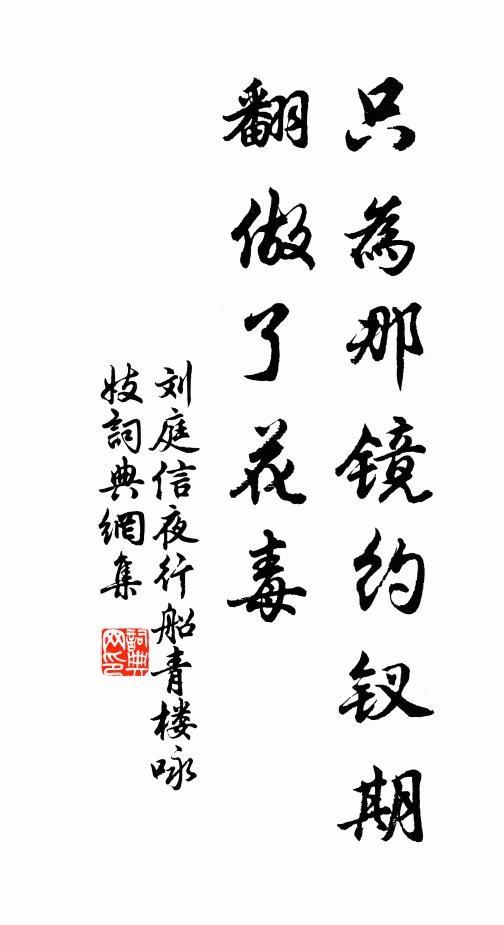 只為那镜约钗期
翻做了花毒
刘庭信夜行船青楼咏
妓詞典網集
詞典
网印